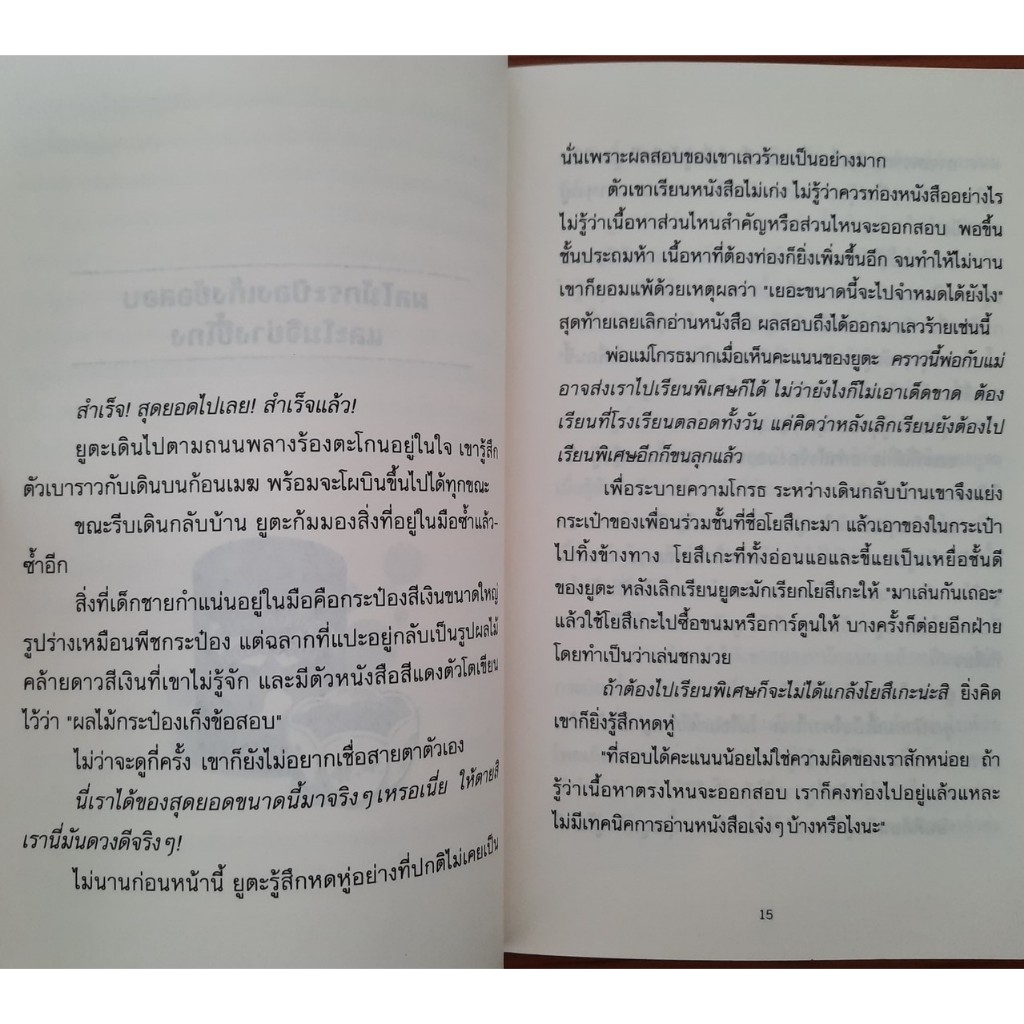 สำเร็จ! สุดยอดไปเลย! สำเร็จแล้ว!
ยูตะเดินไปตามถนนพลางร้องตะโกนอยู่ในใจ เขารู้สึก
ตัวเบาราวกับเดินบนก้อนเมฆ พร้อมจะโผบินขึ้นไปได้ทุกขณะ
ขณะรีบเดินกลับบ้าน ยูตะก้มมองสิ่งที่อยู่ในมือซ้ำแล้ว-
ซ้ำอีก
สิ่งที่เด็กชายกำแน่นอยู่ในมือคือกระป๋องสีเงินขนาดใหญ่
รูปร่างเหมือนพีชกระป๋อง แต่ฉลากที่แปะอยู่กลับเป็นรูปผลไม้
คล้ายดาวสีเงินที่เขาไม่รู้จัก และมีตัวหนังสือสีแดงตัวโตเขียน
ไว้ว่า "ผลไม้กระป๋องเก็งข้อสอบ"
ไม่ว่าจะดูกี่ครั้ง เขาก็ยังไม่อยากเชื่อสายตาตัวเอง
นี่เราได้ของสุดยอดขนาดนี้มาจริงๆ เหรอเนี่ย ให้ตายสิ
เรานี่มันดวงดีจริงๆ!
ไม่นานก่อนหน้านี้ ยูตะรู้สึกหดหู่อย่างที่ปกติไม่เคยเป็น
นั่นเพราะผลสอบของเขาเลวร้ายเป็นอย่างมาก
ตัวเขาเรียนหนังสือไม่เก่ง ไม่รู้ว่าควรท่องหนังสืออย่างไร
ไม่รู้ว่าเนื้อหาส่วนไหนสำคัญหรือส่วนไหนจะออกสอบ พอขึ้น
ชั้นประถมห้า เนื้อหาที่ต้องท่องก็ยิ่งเพิ่มขึ้นอีก จนทำให้ไม่นาน
เขาก็ยอมแพ้ด้วยเหตุผลว่า "เยอะขนาดนี้จะไปจำหมดได้ยังไง"
สุดท้ายเลยเลิกอ่านหนังสือ ผลสอบถึงได้ออกมาเลวร้ายเช่นนี้
พ่อแม่โกรธมากเมื่อเห็นคะแนนของยูตะ คราวนี้พ่อกับแม่
อาจส่งเราไปเรียนพิเศษก็ได้ ไม่ว่ายังไงก็ไม่เอาเด็ดขาด ต้อง
เรียนที่โรงเรียนตลอดทั้งวัน แค่คิดว่าหลังเลิกเรียนยังต้องไป
เรียนพิเศษอีกก็ขนลุกแล้ว
เพื่อระบายความโกรธ ระหว่างเดินกลับบ้านเขาจึงแย่ง
กระเป๋าของเพื่อนร่วมชั้นที่ชื่อโยสึเกะมา แล้วเอาของในกระเป๋า
ไปทิ้งข้างทาง โยสึเกะที่ทั้งอ่อนแอและขี้แยเป็นเหยื่อชั้นดี
ของยูตะ หลังเลิกเรียนยูตะมักเรียกโยสึเกะให้ "มาเล่นกันเถอะ"
แล้วใช้โยสึเกะไปซื้อขนมหรือการ์ตูนให้ บางครั้งก็ต่อยอีกฝ่าย
โดยทำเป็นว่าเล่นชกมวย
ถ้าต้องไปเรียนพิเศษก็จะไม่ได้แกล้งโยสึเกะน่ะสิ ยิ่งคิด
เขาก็ยิ่งรู้สึกหดหู่
"ที่สอบได้คะแนนน้อยไม่ใช่ความผิดของเราสักหน่อย ถ้า
รู้ว่าเนื้อหาตรงไหนจะออกสอบ เราก็คงท่องไปอยู่แล้วแหละ
ไม่มีเทคนิคการอ่านหนังสือเจ๋งๆ บ้างหรือไงนะ"
15